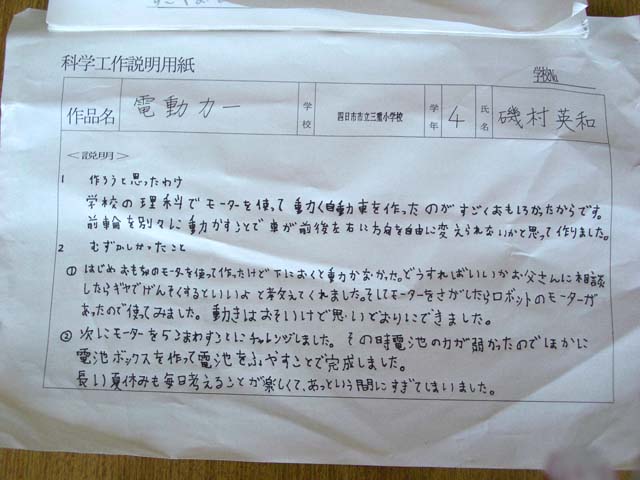 科学工作説明用紙
学校№
作品名 電動カー 学校 四日市市立三重小学校 学年 4 氏名 磯村英和
<説明>
1 作ろうと思ったわけ
学校の理科でモーターを使って動く自動車を作ったのがすごくおもしろかったからです。
前輪を別々に動かすことで車が前後左右に方向を自由に変えられないかと思って作りました。
2 むずかしかったこと
① はじめおもちゃのモーターを使って作ったけど下におくと動かなかった。どうすればいいかお父さんに相談
したらギヤでげんそくするといいよと教えてくれました。そしてモーターをさがしたらロボットのモーターが
あったので使ってみました。動きはおそいけど思いどおりにできました。
② 次にモーターを5こまわすことにチャレンジしました。その時電池の力が弱かったのでほかに
電池ボックスを作って電池をふやすことで完成しました。
長い夏休みも毎日考えることが楽しくて、あっという間にすぎてしまいました。